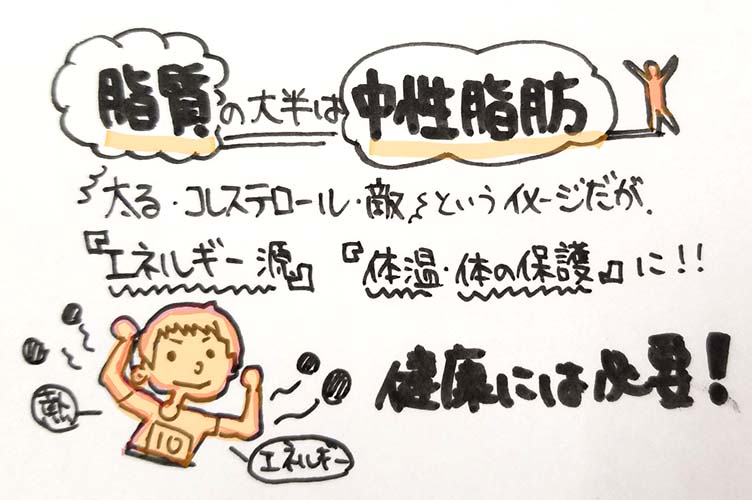 脂質の大半は中性脂肪
太る・コレステロール・敵 というイメージだが、
『エネルギー源』『体温・体の保護』に!!
健康には必要!
熱
10
エネルギー